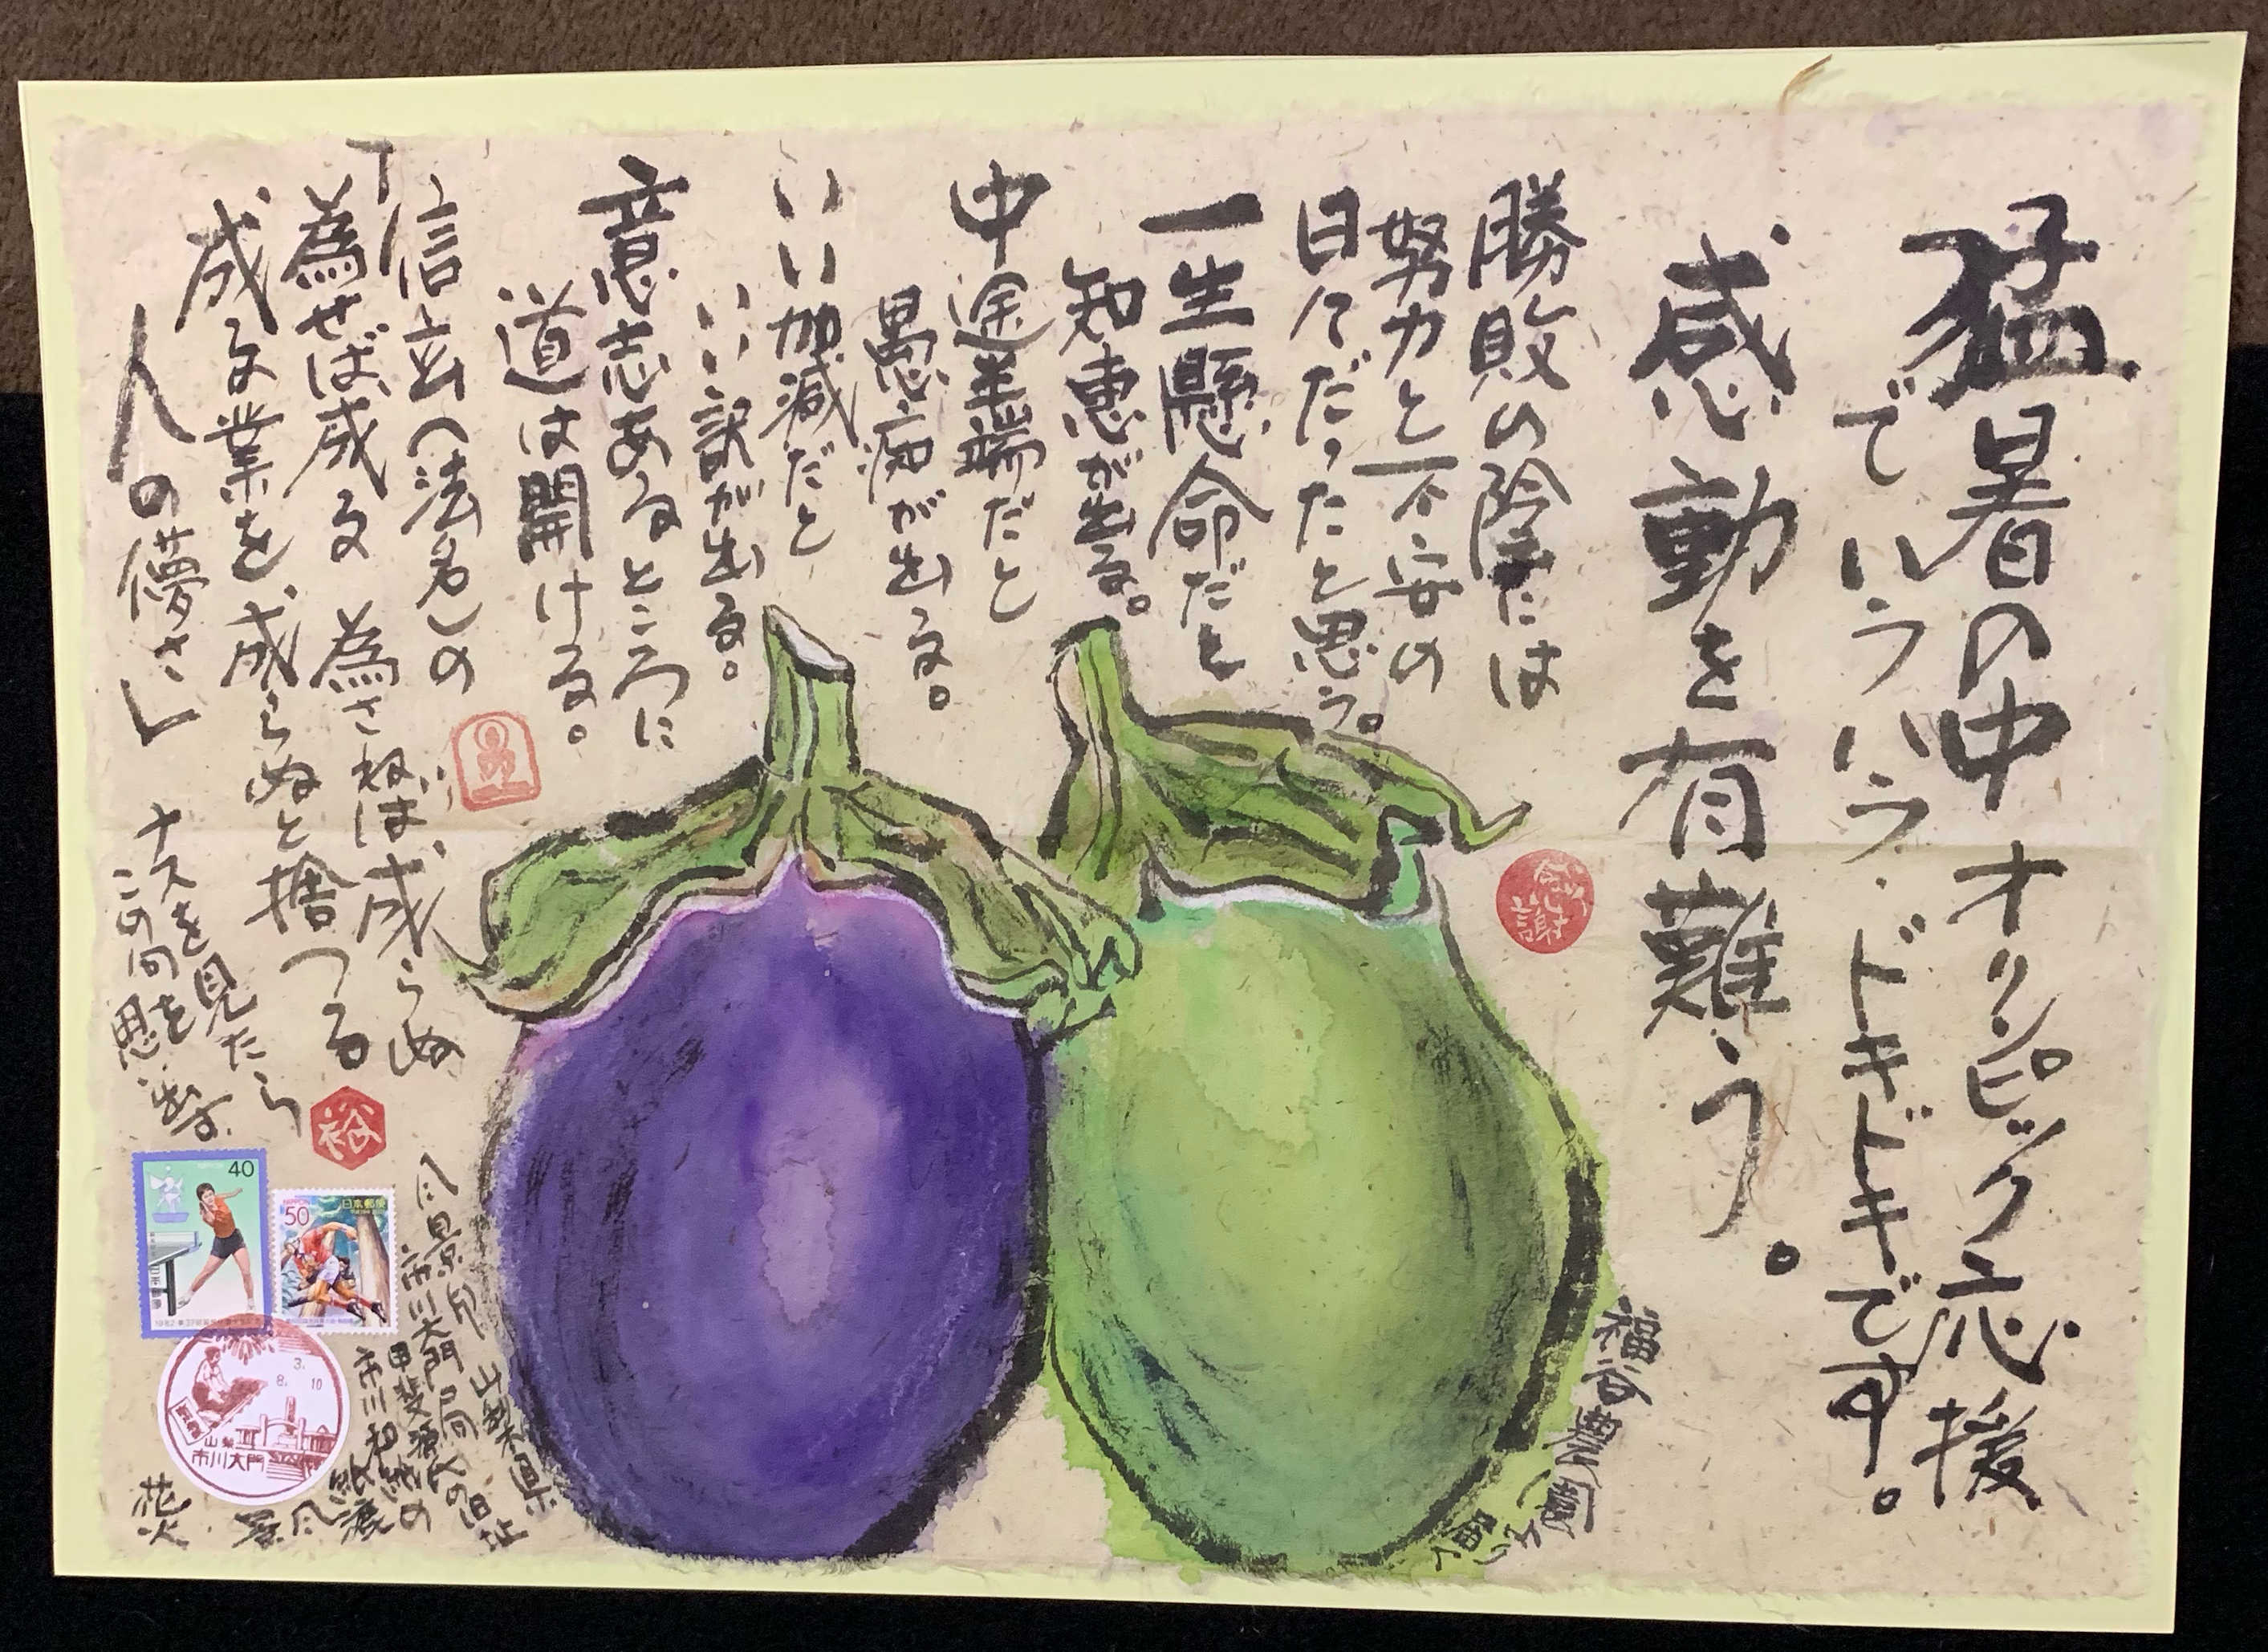 猛暑の中オリンピック応援
でハラハラ・ドキドキです。
感動を有難う。
勝敗の陰には
努力と不安の
日々だったと思う。
一生懸命だと
知恵が出る。
中途半端だと
愚痴が出る。
いい加減だと
いい訳が出る。
意志あるところに
道は開ける。
信玄(法名)の
「為せば成る 為さねば成らぬ
成る業を成らぬと捨つる
人の儚さ」
ナスを見たら
この句を思い出す
感謝
裕
40
日本郵便
50
日本郵便
3.
8. 10
山梨
市川大門
風景印 山梨県
市川大門局
甲斐源氏の旧址
市川和紙の
紙漉
風景
花火